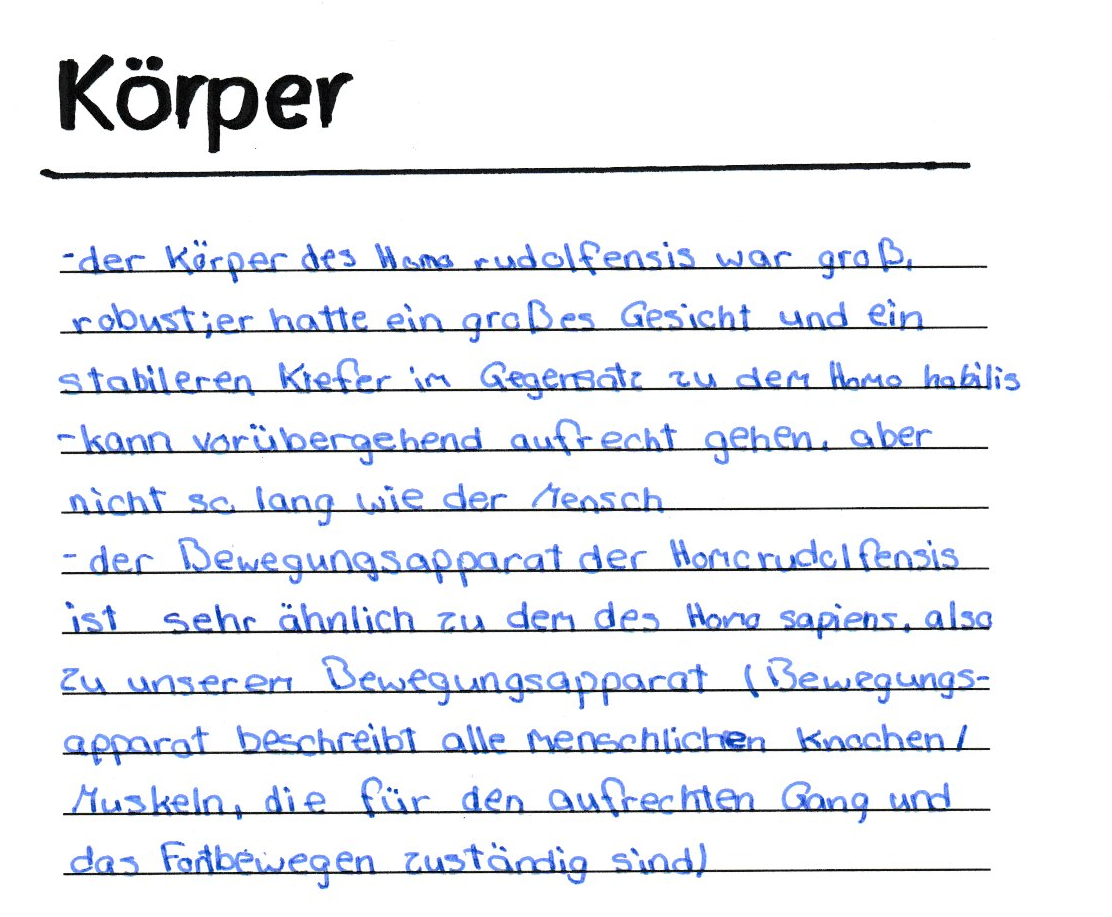 Körper
-der Körper des Homo rudolfensis war groß,
robust; er hatte ein großes Gesicht und ein
stabileren Kiefer im Gegensatz zu dem Homo habilis
-kann vorübergehend aufrecht gehen, aber
nicht so lang wie der Mensch
-der Bewegungsapparat der Homo rudolfensis
ist sehr ähnlich zu dem des Homo sapiens, also
zu unserem Bewegungsapparat (Bewegungs-
apparat beschreibt alle menschlichen Knochen/
Muskeln, die für den aufrechten Gang und
das Fortbewegen zuständig sind)